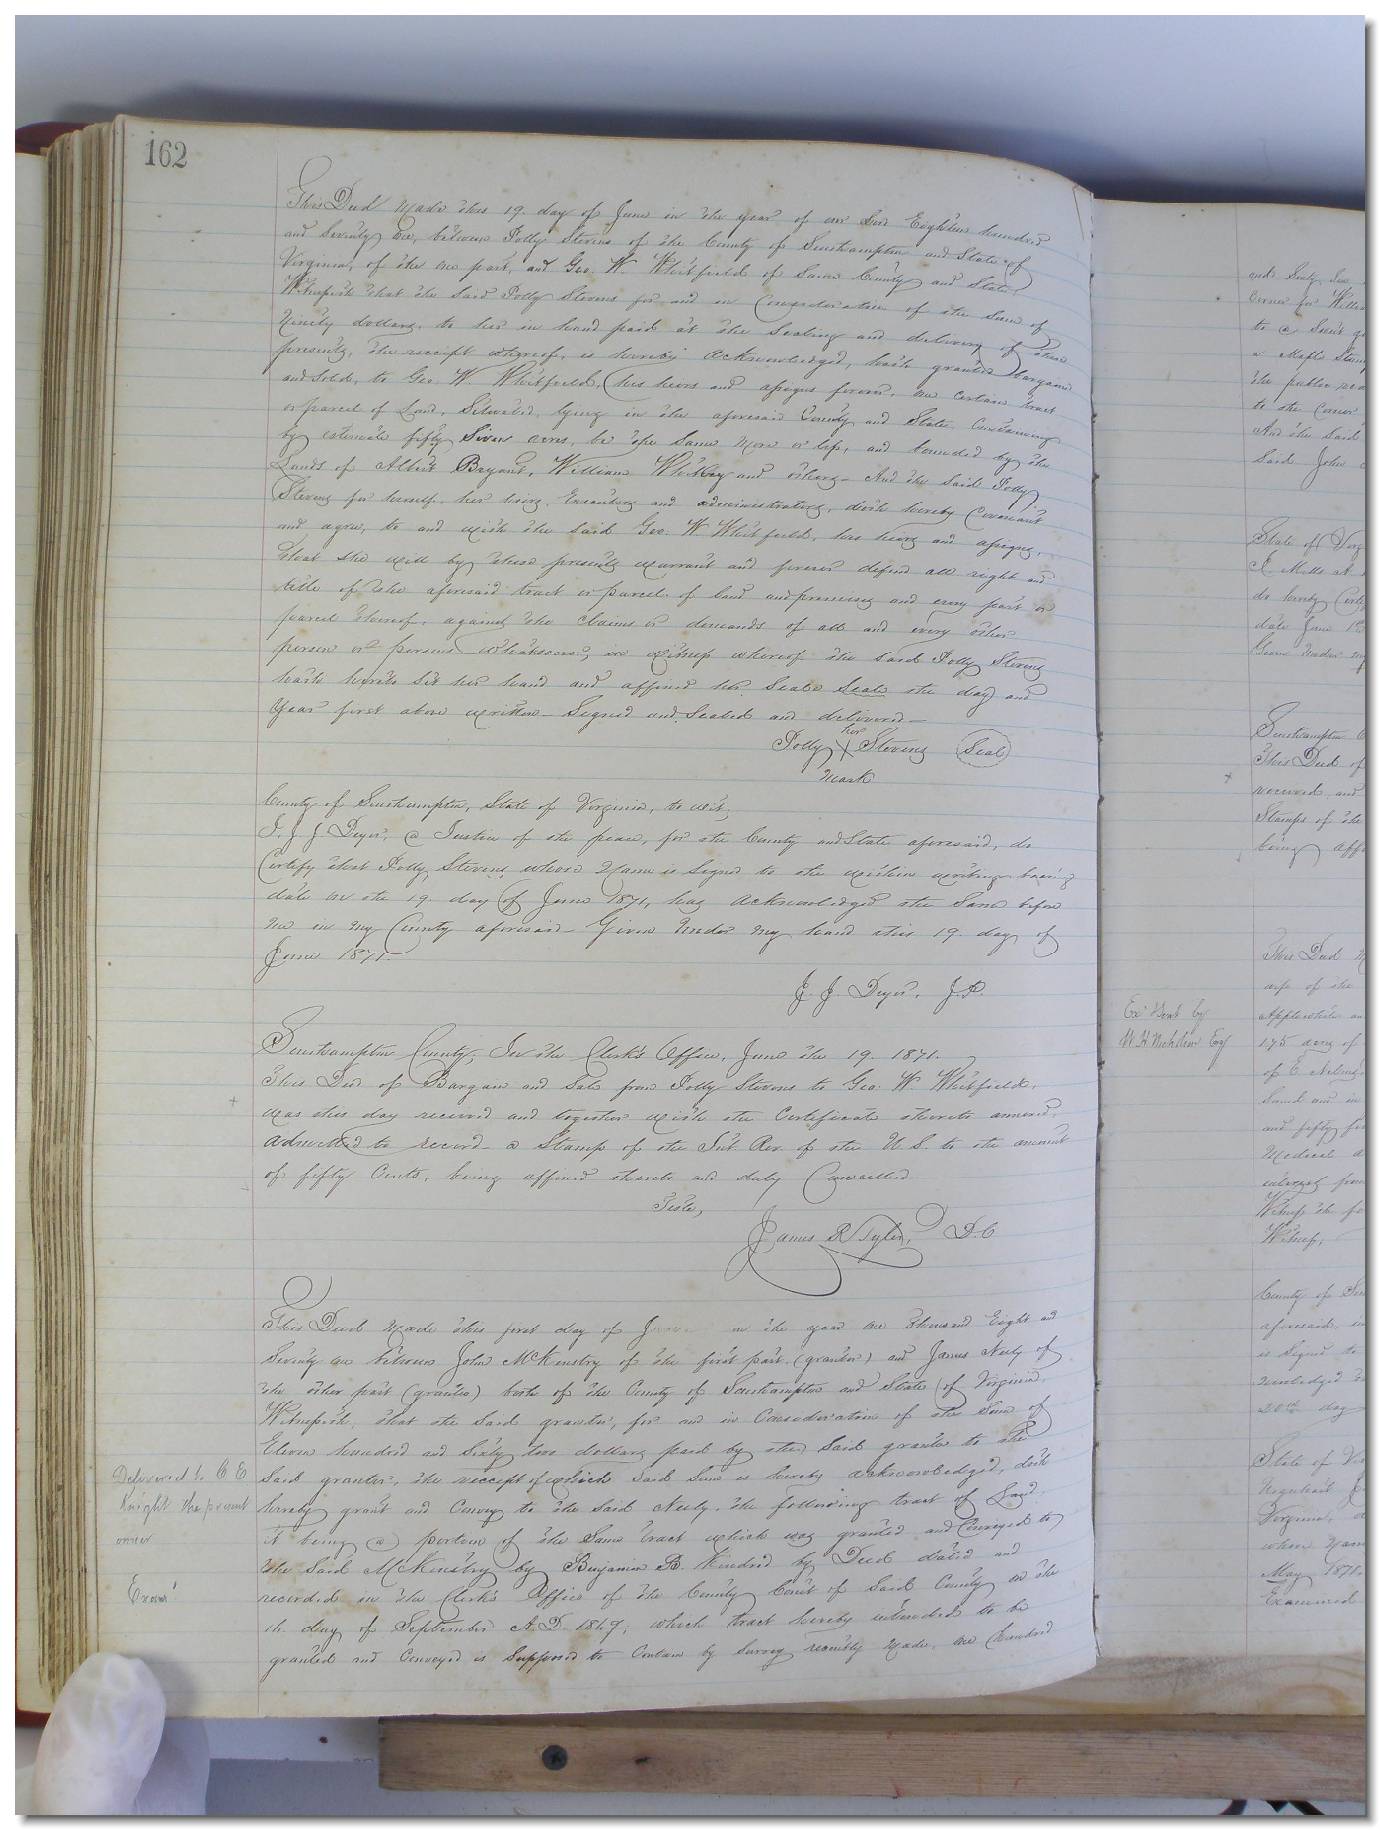 162
This Deed made this 19. day of June in the year of our Lord Eighteen hundred
and Seventy One, between Polly Stevens of the County of Southampton and State of
Virginia, of the one part, and Geo. W. Whitfield of Same County and State,
Witnesseth that the Said Polly Stevens for and in Consideration of the Sum of
Ninety dollars, to her in hand paid at the Sealing and delivery of these
presents, the receipt whereof, is hereby acknowledged, hath granted bargained
and Sold, to Geo. W. Whitfield, his heirs and assigns forever, one certain tract
or parcel of Land, Situated, lying in the aforesaid County and State Containing
by estimate fifty Seven acres, be the Same more or less, and bounded by the
Lands of Albert Bryant, William Whitley and others – And the Said Polly
Stevens for herself her heirs, Executors and administrators, doth hereby Covenant
and agree, to and with the Said Geo. W Whitfield, his heirs and assigns,
that she will by these presents warrant and forever defend all right and
title of the aforesaid tract or parcel of land and premises and every part or
parcel thereof, against the claims or demands of all and every other
person or persons whatsoever, in witness whereof the said Polly Stevens
hath hereto Set her hand and affixed her Seale Seale the day and
Year first above written – Signed and Sealed and delivered –
her
Polly X Stevens (Seal)
Mark
County of Southampton, State of Virginia, to wit;
I. J. J Deyer, a Justice of the peace, for the County and State aforesaid, do
Certify that Polly Stevens whose Name is Signed to the within writing bearing
date on the 19. day of June 1871, has acknowledged the Same before
me in my County aforesaid – Given Under my hand this 19. day of
June 1871 –
J. J. Deyer, J.P.
Southampton County, In the Clerk's Office, June the 19. 1871.
This Deed of Bargain and Sale from Polly Stevens to Geo. W. Whitfield,
was this day received and together with the Certificate thereto annexed,
admitted to record – a Stamp of the Int. Rev. of the U. S. to the amount
of fifty Cents, being affixed thereto and duly Cancelled
Teste,
James R Tyler, D.C
This Deed made this first day of June in the year one Thousand Eight and
Seventy one between John McKinstry of the first part (grantor) and James Neely of
the other part (grantee) both of the County of Southampton and State of Virginia
Witnesseth, that the Said grantor, for and in Consideration of the Sum of
Eleven hundred and Sixty two dollars paid by the Said grantee to the
Said grantor, the receipt of which Said Sum is hereby acknowledged, doth
hereby grant and Convey to the Said Neely, the following tract of Land,
it being a portion of the Same tract which was granted and Conveyed to
the Said McKinstry by Benjamin B. Kindred by Deed dated and
recorded in the Clerk's Office of the County Court of Said County on the
day of September A.D. 1869, which tract hereby intended to be
granted and Conveyed is Supposed to Contain by Survey recently Made, one hundred
Delivered to C E
Knight the present
owner
Exam'd
W. H. Nicklin Esq
Corner for
a Maple
the public
to the Corner
And the Said
Said John
State of
do hereby
date June
Given Under
Southampton
This Deed of
received and
Stamps of the
being
This Deed
wife of the
Applewhite
175 acres of
of E
and fifty
Medical
Witness the
Witness,
County of
aforesaid
is Signed to
20th day
State of
Virginia,
whose Name
May 1871.
Examined